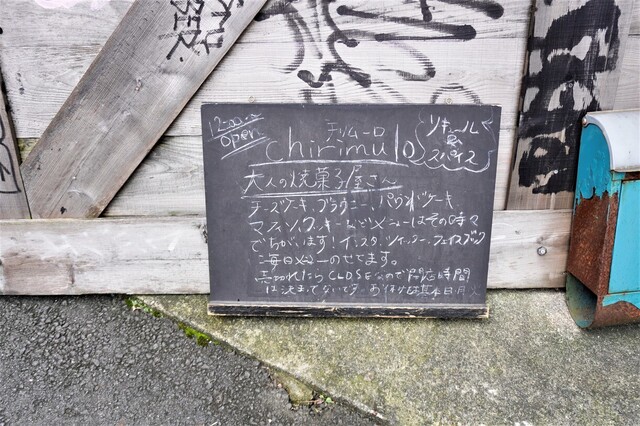 12:00〜
open
チリムーロ
chirimulo
リキュール
&
スパイス
大人の焼菓子屋さん
チーズケーキ、ブラウニー、パウンドケーキ、
マフィン、クッキーなどメニューはその時々
でちがいます！インスタ、ツイッター、フェイスブック
に毎日メニューのせてます。
売切れたらCLOSEなので閉店時間
は決まってないです。お休みは基本日・月